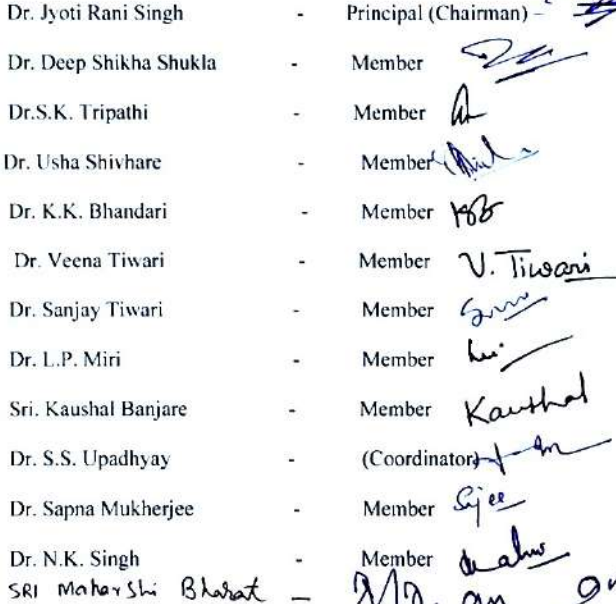 Dr. Jyoti Rani Singh - Principal (Chairman) -
Dr. Deep Shikha Shukla - Member
Dr.S.K. Tripathi - Member
Dr. Usha Shivhare - Member
Dr. K.K. Bhandari - Member
Dr. Veena Tiwari - Member V. Tiwari
Dr. Sanjay Tiwari - Member
Dr. L.P. Miri - Member
Sri. Kaushal Banjare - Member Kaushal
Dr. S.S. Upadhyay - (Coordinator)
Dr. Sapna Mukherjee - Member
Dr. N.K. Singh - Member
SRI Maharshi Bharat -